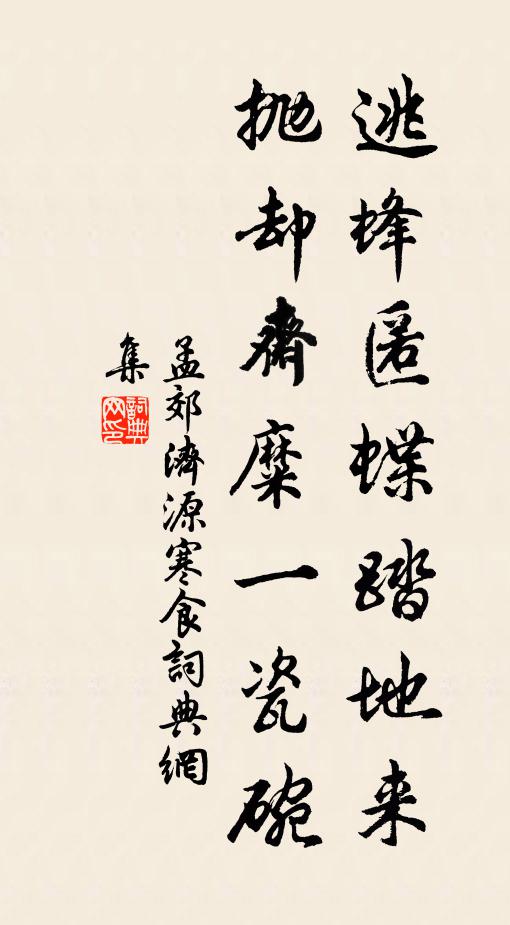 逃蜂匿蝶踏地来
抛却斋糜一瓷碗
孟郊濟源寒食詞典網
集
詞典
网印